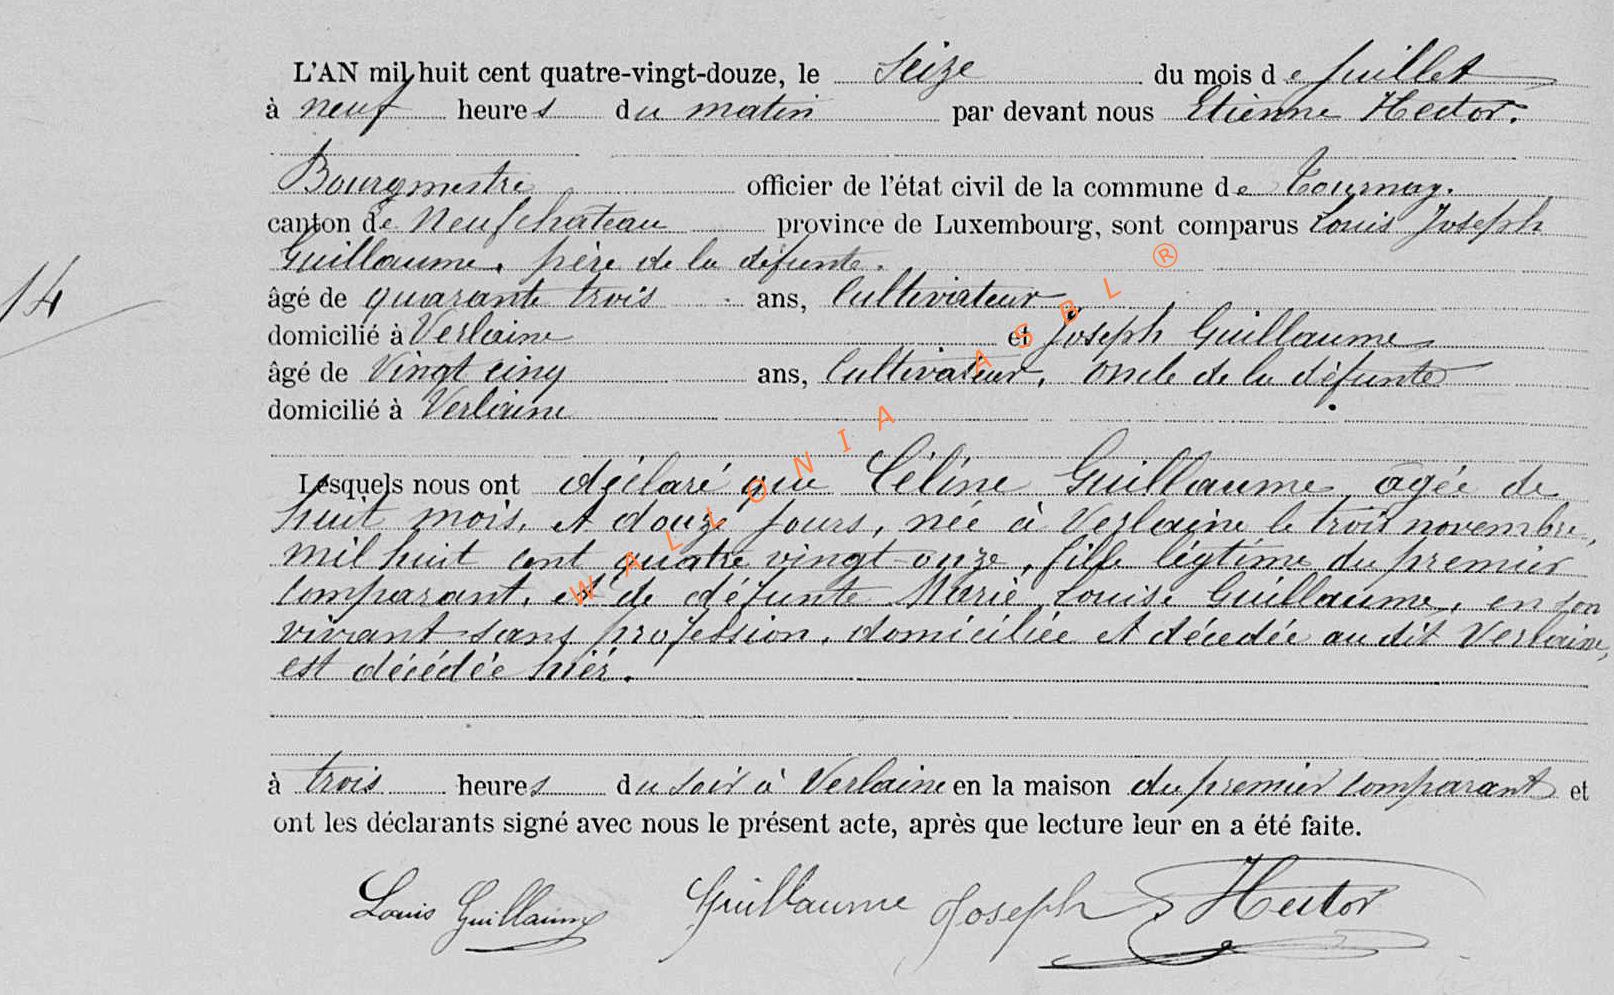 L'AN mil huit cent quatre-vingt-douze, le Seize du mois de Juillet
à neuf heures du matin par devant nous Etienne Hector.
Bourgmestre officier de l'état civil de la commune de Tournay.
canton de Neufchateau province de Luxembourg, sont comparus Louis Joseph
Guillaume. père de la défunte.
14
âgé de quarante trois ans, Cultivateur
domicilié à Verlaine et Joseph Guillaume
âgé de Vingt cinq ans, Cultivateur. oncle de la défunte
domicilié à Verlaine
Lesquels nous ont déclaré que Céline Guillaume, agée de
huit mois, et douze jours, née à Verlaine le trois novembre,
mil huit cent quatre vingt-onze, fille légtime du premier
comparant, et de défunte Marie Louise Guillaume, en son
vivant sans profession, domiciliée et décedée au dit Verlaine,
est décédée hier.
à trois heures du soir à Verlaine en la maison du premier comparant et
ont les déclarants signé avec nous le présent acte, après que lecture leur en a été faite.
Louis Guillaume Guillaume Joseph Hector
WALLONIA ASBL ®